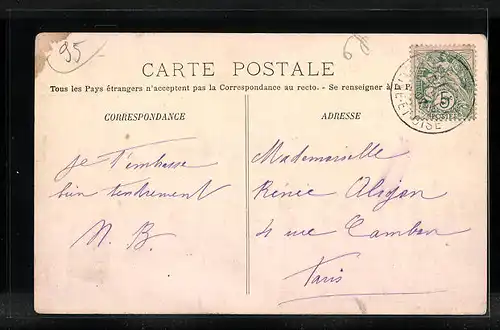 95
CARTE POSTALE
Tous les Pays étrangers n'acceptent pas la Correspondance au recto. - Se renseigner à la P
CORRESPONDANCE
ADRESSE
5
ET-OISE
Je t'embrasse
bien tendrement
M. B.
Mademoiselle
Renée
4 rue Cambon
Paris